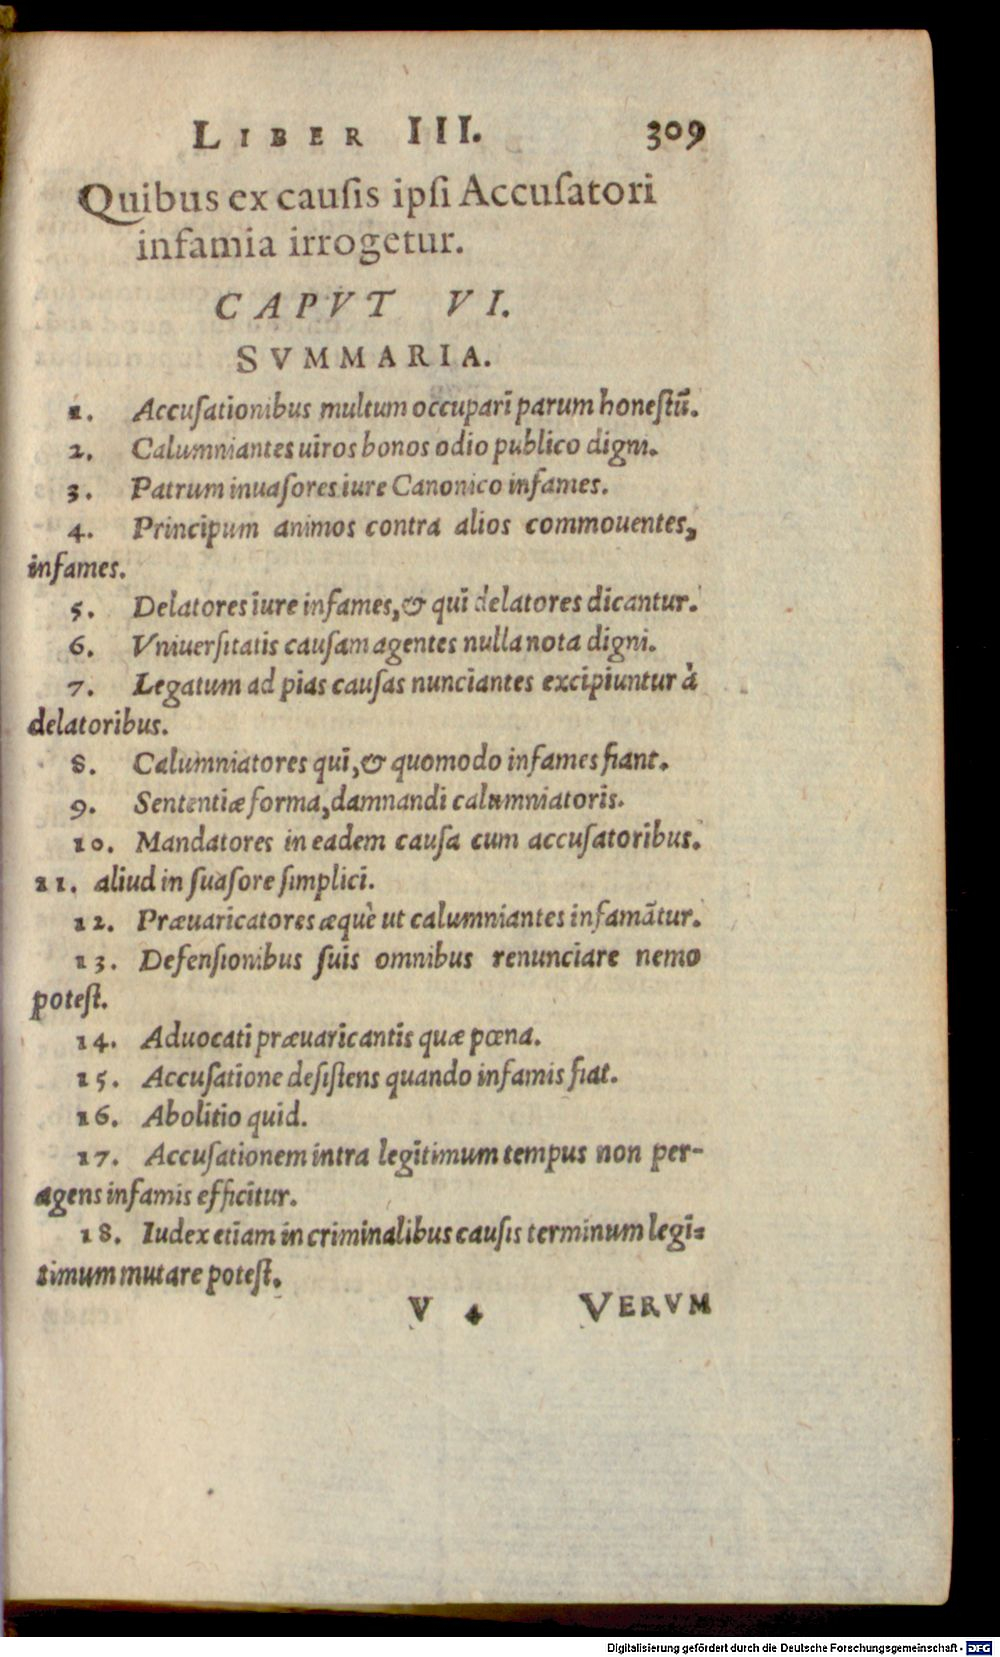 LIBER III. 309
Quibus ex cauſis ipſi Accuſatori
infamia irrogetur.
CAPVT VI.
SVMMARIA.
1. Accuſationibus multum occupari parum honeſtū.
2. Calumniantes uiros bonos odio publico digni.
3. Patrum inuaſores iure Canonico infames.
4. Principum animos contra alios commouentes,
infames.
5. Delatores iure infames, & qui delatores dicantur.
6. Vniuerſitatis cauſam agentes nulla nota digni.
7. Legatum ad pias cauſas nunciantes excipiuntur à
delatoribus.
8. Calumniatores qui, & quomodo infames fiant.
9. Sententiæ forma, damnandi calumniatoris.
10. Mandatores in eadem cauſa cum accuſatoribus.
11. aliud in ſuaſore ſimplici.
12. Præuaricatores æquè ut calumniantes infamātur.
13. Defenſionibus ſuis omnibus renunciare nemo
poteſt.
14. Aduocati præuaricantis quæ pœna.
15. Accuſatione deſiſtens quando infamis fiat.
16. Abolitio quid.
17. Accuſationem intra legitimum tempus non per-
agens infamis efficitur.
18. Iudex etiam in criminalibus cauſis terminum legi-
timum mutare poteſt.
V 4 VERVM
Digitalisierung gefördert durch die Deutsche Forschungsgemeinschaft - DFG